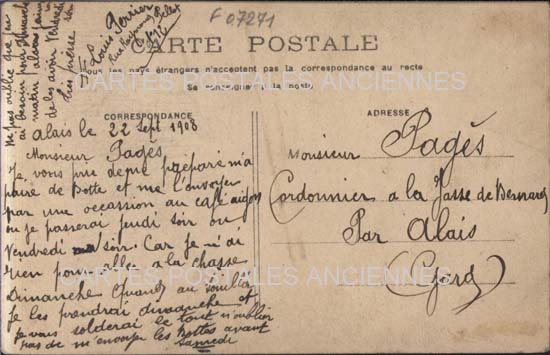 F 07271
CARTE POSTALE
Tous les pays étrangers n'acceptent pas la correspondance au recto
Se renseigner à la poste
CARTES POSTALES ANCIENNES
CORRESPONDANCE
ADRESSE
Alais le 22 Sept 1908
Monsieur Pagès
Je vous prie de me préparé ma
paire de Botte et me l'envoyer
par une occassion au café
ou je passerai jeudi soir ou
Vendredi soir. Car je n'ai
rien pour aller a la chasse
Dimanche Quand au
Je les prendrai dimanche et
je vous solderai le tout n'oublier
pas de m'envoyer les Bottes avant
Samedi
Monsieur Pagès
Cordonnier a la
Par Alais
(Gard)
Ne pas oublié que j'en
ai besoin pour dimanche
matin
de les avoir Vendredi
soir
Louis Perrier
CARTES POSTALES ANCIENNES